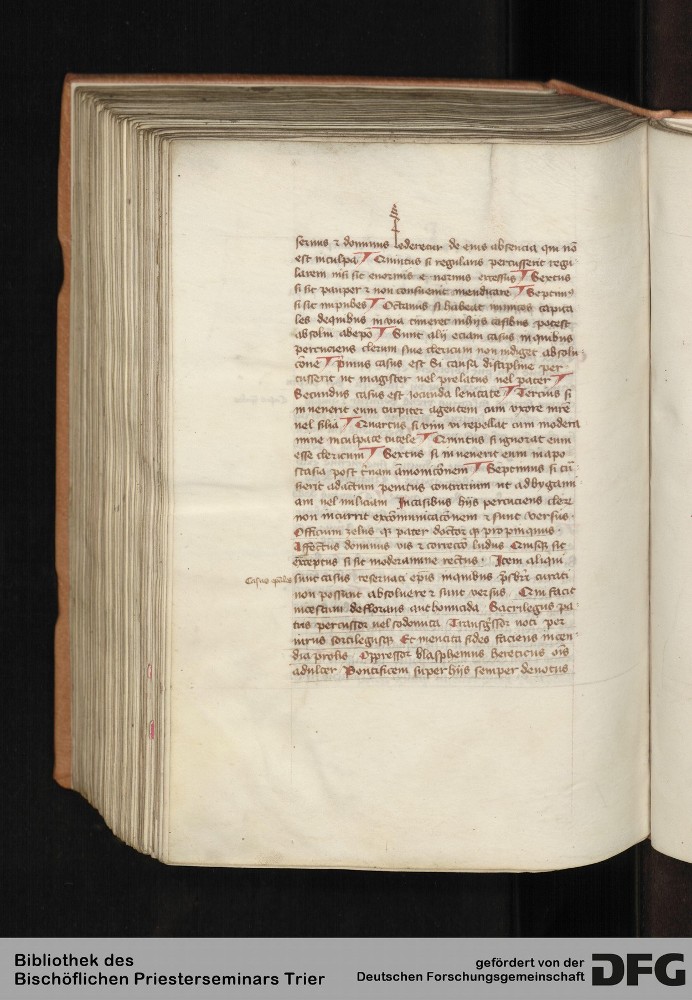 seruus ⁊ dominus lederetur de eius absencia qui nō
est in culpa Quintus si regularis percusserit regu
larem nisi sit enormis excessus Sextus
si sit pauper ⁊ non consueuit mendicare Septimꝰ
si sit inpubes Octauus si habeat inimicos capita
les de quibus in via timeret in hijs casibus potest
absolui ab ep̄o Sunt alij eciam casus in quibus
percuciens clerum siue clericum non indiget absolu
cōne Primus casus est Si causa discipline per
cusserit ut magister uel prelatus uel pater
Secundus casus est iocunda leuitate Tercius si
inuenerit eum turpiter agentem cum vxore mr̄e
uel filia Quartus si vim vi repellat cum modera
mine inculpate tutele Quintus si ignorat eum
esse clericum Sextus si inuenerit eum in apo
stasia post t̄nam āmonicōnem Septimus si
fierit ad actum penitus contrarium ut ad bygami
am uel miliciam In casibus hijs percuciens cler
non incurrit excōmunicacōnem ⁊ sunt versus
Officium zelus qꝫ pater doctor qꝫ propinquus
Affectus dominus vis ⁊ correcco ludus Quisqꝫ sit
exceptus si sit moderamine rectus Item aliqui
Casus
sunt casus reseruati ep̄is in quibus p̄sbr̄i curati
non possunt absoluere ⁊ sunt versus Qui facit
incestum deflorans aut homicida Sacrilegus pa
tris percussor uel sodomita Transg̅ssor uoti per
iurus sortilegusqꝫ Et mentita fides faciens incen
dia prolis Oppressor blasphemus hereticus ōis
adulter Pontificem super hijs semper deuotus
Bibliothek des
Bischöflichen Priesterseminars Trier
gefördert von der
Deutschen Forschungsgemeinschaft
DFG